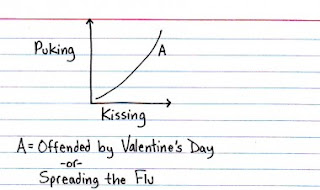 Puking
A
Kissing
A = Offended by Valentine's Day
-or-
Spreading the Flu